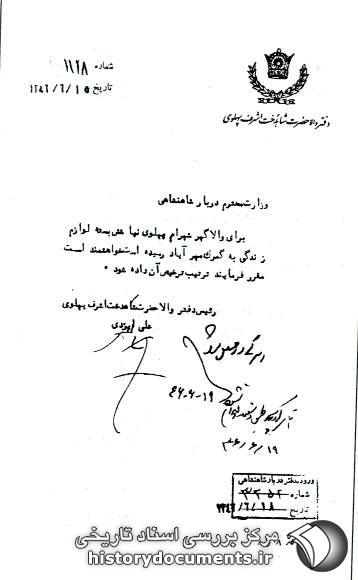 شماره ۱۱۲۸
تاریخ ۱۳۴۶/۶/۱۵
دفتر والاحضرت شاهدخت اشرف پهلوی
وزارت محترم دربار شاهنشاهی
برای والاگهر شهرام پهلوی نیا شش بسته لوازم
زندگی به گمرک مهرآباد رسیده است خواهشمند است
مقرر فرمایند ترتیب ترخیص آن داده شود .
رئیس دفتر والاحضرت شاهدخت اشرف پهلوی
علی ایزدی
۴۶-۶-۱۹
۴۶/۶/۱۹
ورود بدفتر دربار شاهنشاهی
شماره
تاریخ ۱۳۴۶/۶/۱۸
مرکز بررسی اسناد تاریخی
historydocuments.ir